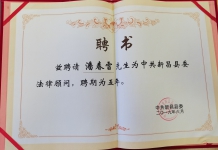 聘书
兹聘请潘春雷先生为中共新昌县委
法律顾问，聘期为五年。
中共新昌县委
二〇一六年六月